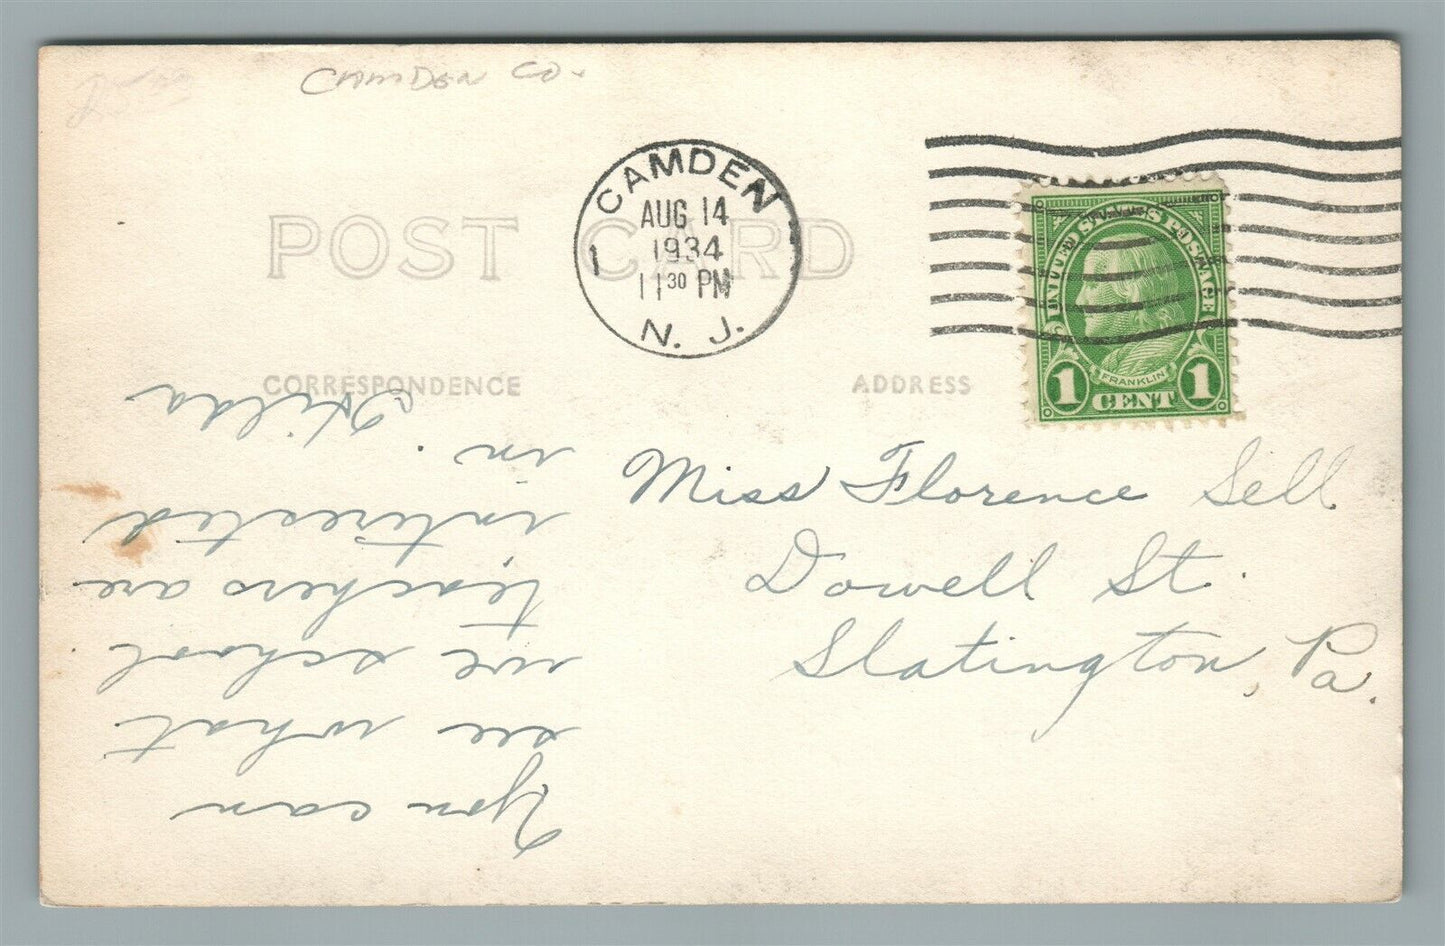 CAMDEN CO.
POST CARD
CAMDEN
AUG 14
1934
11 30 PM
N. J.
1
UNITED STATES POSTAGE
FRANKLIN
1 CENT 1
CORRESPONDENCE
ADDRESS
Miss Florence Sell
Dowell St.
Slatington, Pa.
You can
see what
we school
teachers are
interested
in.
Hilda